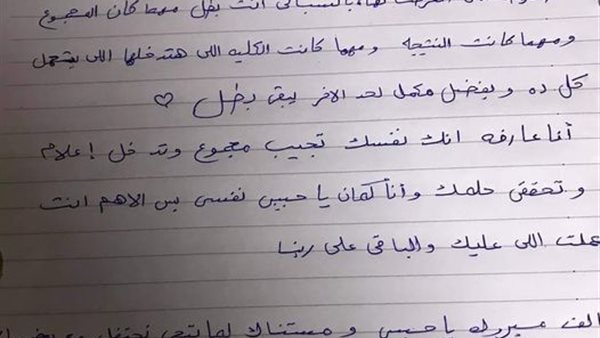 بالنسبالي انت بطل مهما كان المجموع
ومهما كانت النتيجه ومهما كانت الكليه اللى هتدخلها اللى يتحمل
كل ده ويفضل مكمل لحد الاخر يبقى بطل ♡
أنا عارفه انك نفسك تجيب مجموع وتدخل إعلام
وتحققى حلمك وأنا كمان يا حبيبى نفسى بس الاهم انت
عملت اللى عليك والباقى على ربنا
الف مبروك يا حبيبى و مستنياك لما تيجى نحتفل